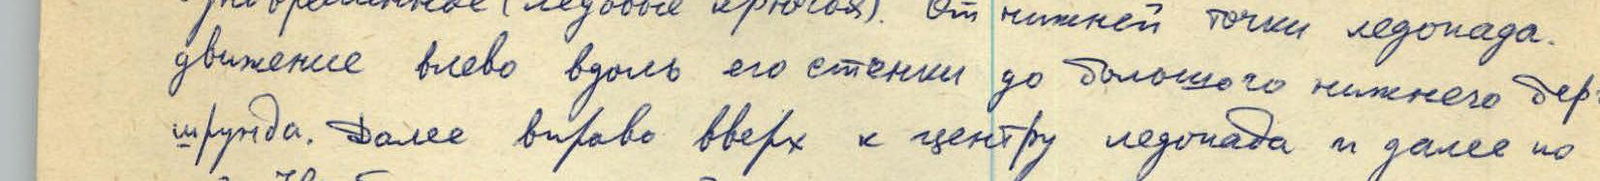 (ледовые крючья). От нижней точки ледопада.
движение влево вдоль его стенки до большого нижнего бер-
шрунда. Далее вправо вверх к центру ледопада и далее по